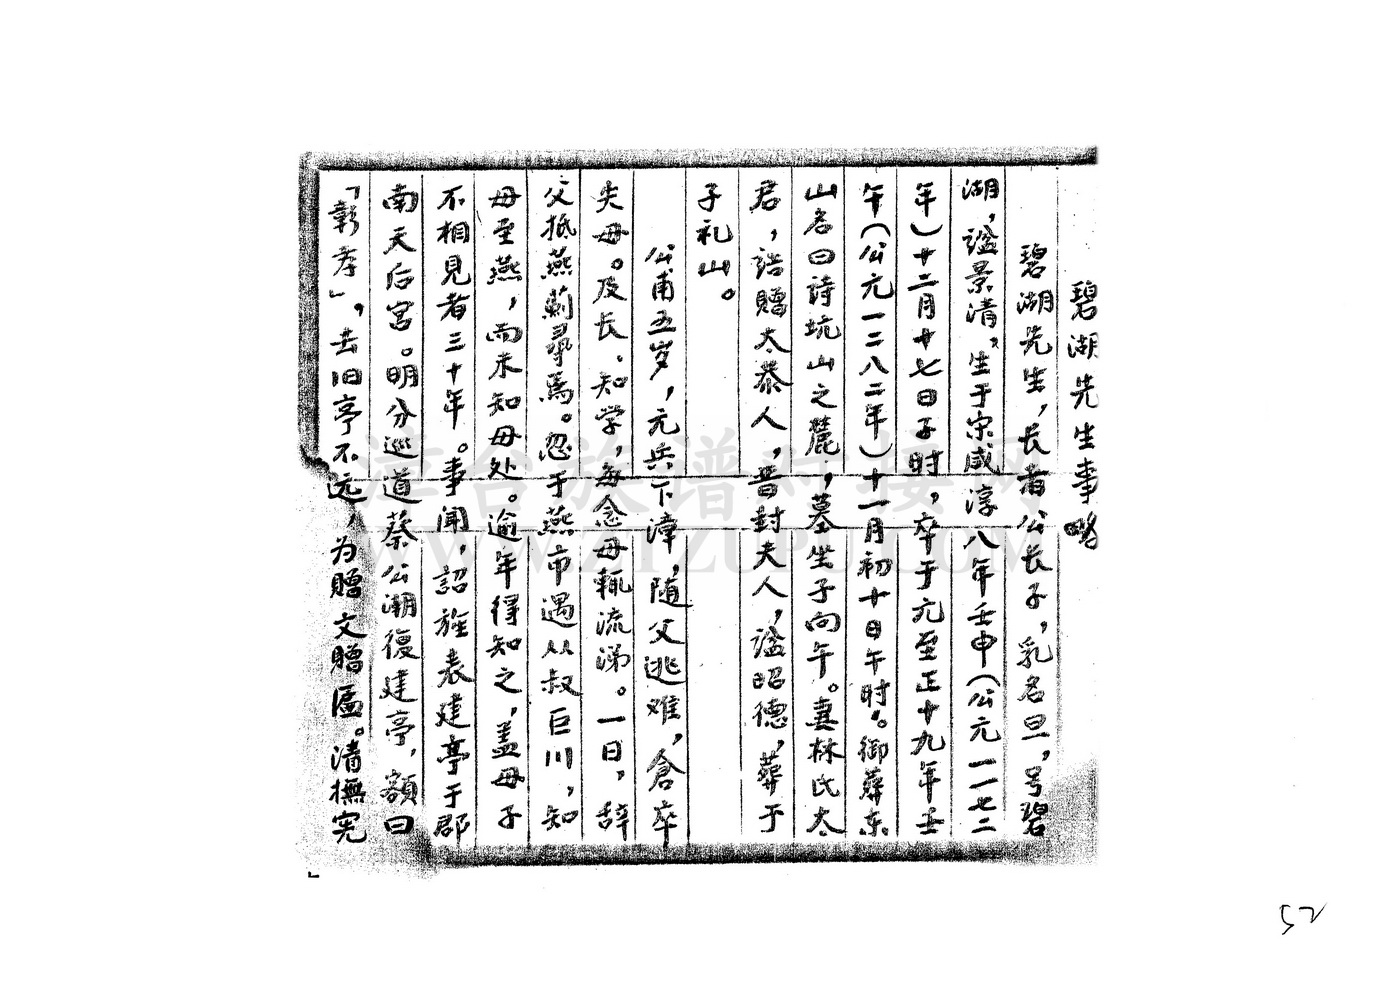 碧湖先生事略
碧湖先生，长者公长子，乳名旦，号碧
湖，谥景清。生于宋咸淳八年壬申（公元一一七二
年）十二月十七日子时，卒于元至正十九年壬
午（公元一二八二年）十一月初十日午时。御葬东
山名曰诗坑山之麓，墓坐子向午。妻林氏太
君，诰赠太恭人，晋封夫人，谥昭德，葬于
子礼山。
公甫五岁，元兵下漳，随父逃难，仓卒
失母。及长、知学，每念母辄流涕。一日，辞
父抵燕蓟寻焉。忽于燕市遇从叔巨川，知
母至燕，而未知母处。逾年得知之，盖母子
不相见者三十年。事闻，诏旌表建亭于郡
南天后宫。明分巡道蔡公潮复建亭，额曰
「彰孝」，去旧亭不远，为赠文赠匾。清抚宪
漳台族谱对接网
WWW.ZTZUPU.COM
52